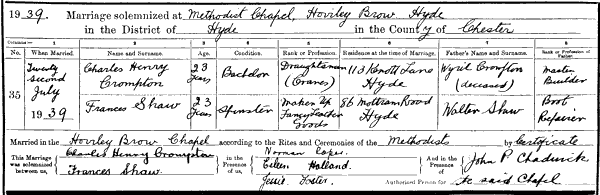 1939. Marriage solemnized at Methodist Chapel, Hoviley Brow Hyde
in the District of Hyde in the County of Chester
Columns :— 1 2 3 4 5 6 7 8
No. When Married. Name and Surname. Age. Condition. Rank or Profession. Residence at the time of Marriage. Father's Name and Surname. Rank or Profession of Father
35
Twenty second July 1939
Charles Henry Crompton 23 Years Bachelor Draughtsman (Cranes) 113 Knott Lane Hyde Wyril Crompton (deceased) Master Builder
Frances Shaw 23 Years Spinster Maker Up Fancy Leather Goods 86 Mottram Road Hyde Walter Shaw Boot Repairer
Married in the Hoviley Brow Chapel according to the Rites and Ceremonies of the Methodists by Certificate
This Marriage was solemnized between us,
Charles Henry Crompton
Frances Shaw
in the Presence of us,
Norman
Eileen Holland
Jessie Foster
And in the Presence of
John P Chadwick
Authorised Person for the said Chapel